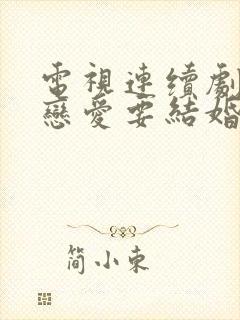 電視連續劇
戀愛要結婚
简小東